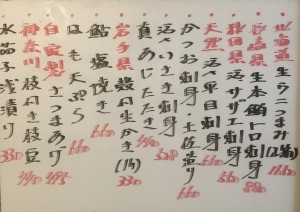 北海道 生ウニつまみ(2貫) 1160
生本鮪トロ刺身 880
秋田県 活サザエ刺身 660
天然 活平目刺身 660
かつお刺身・土佐造り 660
活〆いさき刺身
真あじたたき 440
岩手県 殻付生かき(1ヶ) 550
鮎塩焼き 660
はも天ぷら 660
自家製 さつまあげ 495
神奈川 枝付き枝豆 440
水茄子浅漬り 330